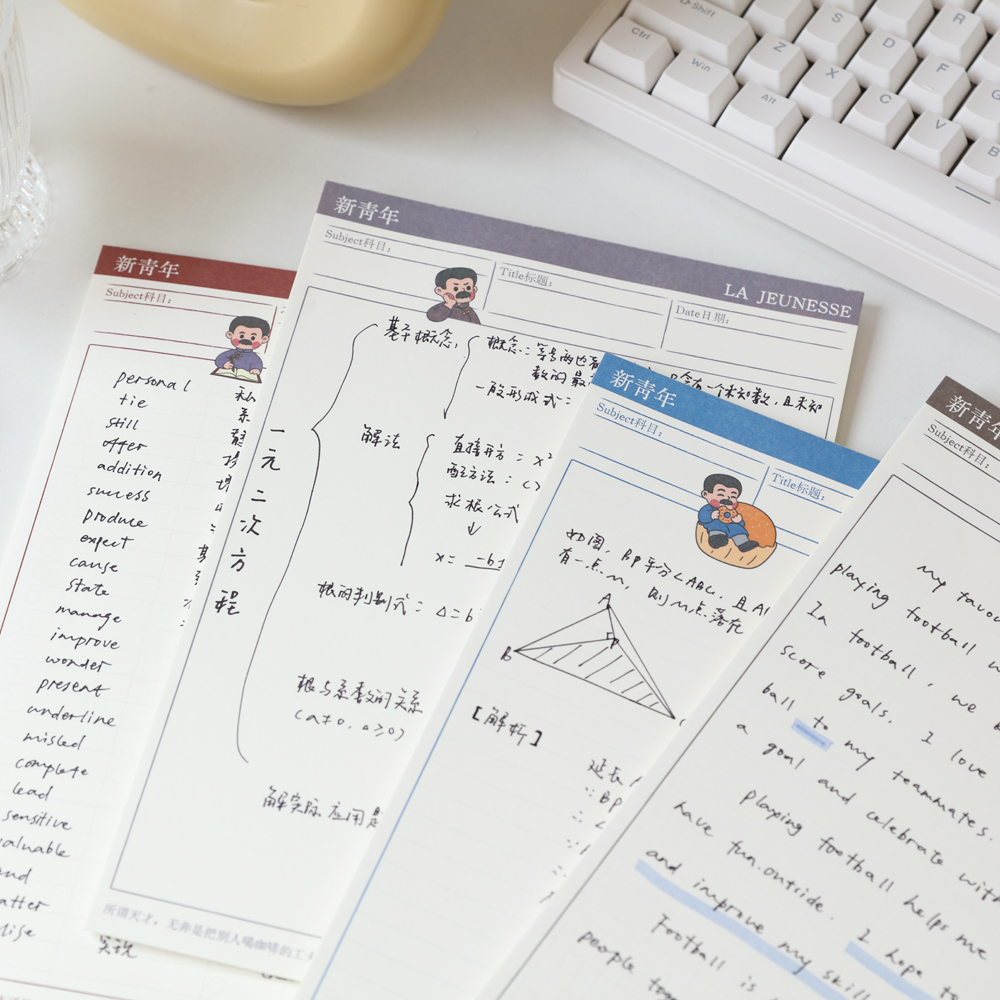 Shift
S
R
Ctrl
Z
D
F
Win
X
C
G
Alt
V
B
新青年
Subject科目:
personal
tie
still
offer
addition
success
produce
expect
cause
state
manage
improve
wonder
present
underline
misled
complete
lead
sensitive
私
系
新青年
LA JEUNESSE
Subject科目:
Title标题:
Date日期:
一元二次方程
基本概念:
概念: 等号两边
个未知数,且未知
数的最
一般形式:
解法
直接开方: x²
配方法:
求根公式
↓
x=
根的判别式: Δ=b
根与系数的关系
(a≠0, Δ≥0)
解实际应用是
所谓天才,无非是把别人喝咖啡的工夫
实现
新青年
Subject科目:
Title标题:
如图, BP平分∠ABC, 且A
有一点M, 则M点落在
A
B
P
[解析]
延长
∵BP
∴∠
新青年
Subject科目:
my favou
playing football w
In football, we k
score goals. I love
ball to my teammates.
a goal and celebrate with
playing football helps me
have fun outside. I hope to
and improve my skill
Football is
people